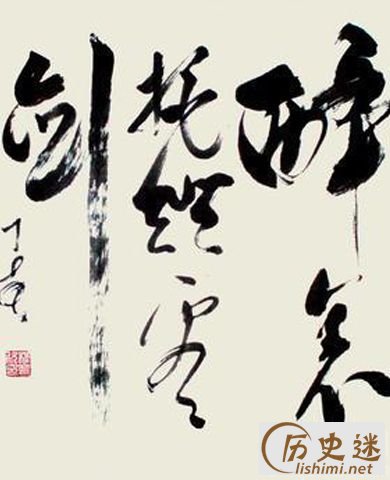 醉裏
挑燈看
剑
历史迷
lishimi.net